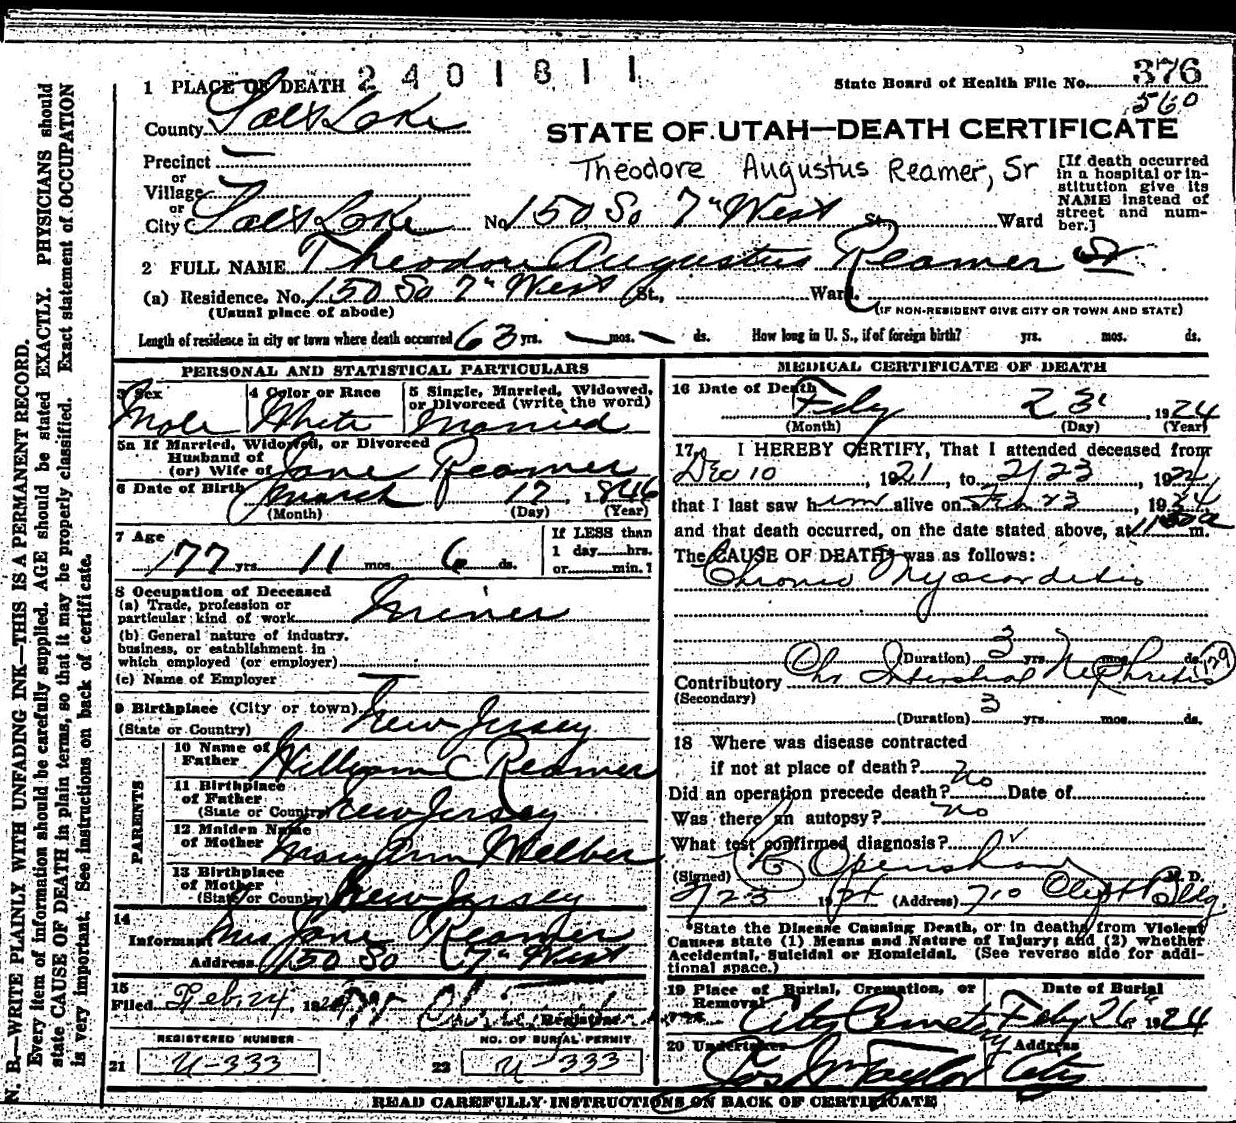 2401811
1 PLACE OF DEATH
State Board of Health File No. 376
560
County Salt Lake
STATE OF UTAH—DEATH CERTIFICATE
Precinct —
or
Village
or
City Salt Lake No. 150 So 7" West St. Ward
Theodore Augustus Reamer, Sr
[If death occurred in a hospital or institution give its NAME instead of street and number.]
2 FULL NAME Theodore Augustus Reamer Sr
(a) Residence. No. 150 So 7" West St., Ward.
(Usual place of abode) (IF NON-RESIDENT GIVE CITY OR TOWN AND STATE)
Length of residence in city or town where death occurred 63 yrs. — mos. — ds. How long in U. S., if of foreign birth? yrs. mos. ds.
PERSONAL AND STATISTICAL PARTICULARS
3 Sex Male
4 Color or Race White
5 Single, Married, Widowed, or Divorced (write the word) Married
5a If Married, Widowed, or Divorced
Husband of
(or) Wife of Jane Reamer
6 Date of Birth March 17, 1846
(Month) (Day) (Year)
7 Age 77 yrs. 11 mos. 6 ds.
If LESS than
1 day hrs.
or min.?
8 Occupation of Deceased
(a) Trade, profession or
particular kind of work Miner
(b) General nature of industry,
business, or establishment in
which employed (or employer)
(c) Name of Employer —
9 Birthplace (City or town)
(State or Country) New Jersey
PARENTS
10 Name of Father William C Reamer
11 Birthplace of Father
(State or Country) New Jersey
12 Maiden Name of Mother Mary Ann Wilber
13 Birthplace of Mother
(State or Country) New Jersey
14
Informant Mrs Jane Reamer
Address 150 So 7" West
15
Filed Feb. 24, 1924
Registrar
REGISTERED NUMBER
21 U-333
NO. OF BURIAL PERMIT
22 U-333
MEDICAL CERTIFICATE OF DEATH
16 Date of Death Feby 23, 1924
(Month) (Day) (Year)
17 I HEREBY CERTIFY, That I attended deceased from
Dec 10, 1921, to 2/23, 1924,
that I last saw him alive on Feb 23, 1924
and that death occurred, on the date stated above, at m.
The CAUSE OF DEATH was as follows:
Chronic Myocarditis
(Duration) 3 yrs. mos. ds.
Contributory Chr Interstitial Nephritis 129
(Secondary)
(Duration) 3 yrs. mos. ds.
18 Where was disease contracted
if not at place of death?
Did an operation precede death? no Date of
Was there an autopsy? no
What test confirmed diagnosis?
(Signed) Openshaw M. D.
2/23 1924 (Address) 710 Clift Bldg.
*State the Disease Causing Death, or in deaths from Violent
Causes state (1) Means and Nature of Injury; and (2) whether
Accidental, Suicidal or Homicidal. (See reverse side for additional space.)
19 Place of Burial, Cremation, or Removal City Cemetery
Date of Burial Feby 26" 1924
20 Undertaker Jos Wm Taylor
Address City
READ CAREFULLY INSTRUCTIONS ON BACK OF CERTIFICATE
N. B.—WRITE PLAINLY WITH UNFADING INK—THIS IS A PERMANENT RECORD.
Every item of information should be carefully supplied. AGE should be stated EXACTLY. PHYSICIANS should
state CAUSE OF DEATH in plain terms, so that it may be properly classified. Exact statement of OCCUPATION
is very important. See instructions on back of certificate.